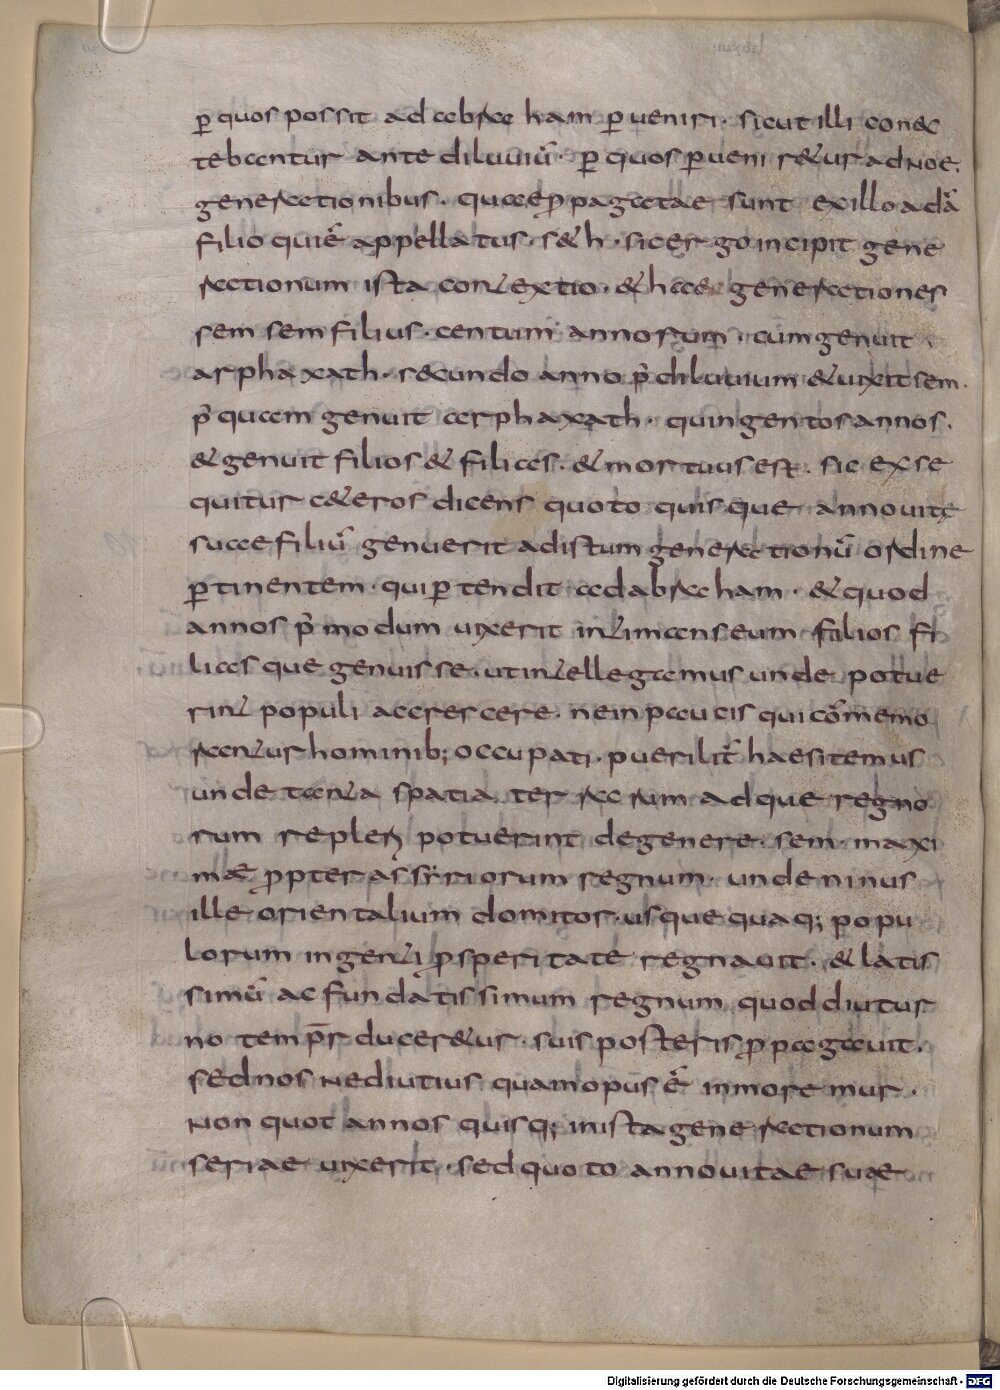 ꝑ quos possit ad abraham ꝑueniri. sicut illi conec
tebantur ante diluuiū. ꝑ quos ꝑueniretur ad noe.
generationibus. quae ꝓpagatae sunt ex illo adā
filio qui ē appellatus. seth. sic ergo incipit gene
rationum ista contextio. & hae generationes
sem sem filius. centum annorum. cum genuit
arphaxath. secundo anno p̄ diluuium & uixit sem.
p̄ quam genuit arphaxath. quingentos annos.
& genuit filios & filias. & mortuus est. sic exse
quitur c&eros dicens quoto quisque anno uite
suae filiū genuerit ad istum generationū ordine
ꝑtinentem. qui ꝑtendit ad abraham. & quod
annos p̄modum uixerit intimans eum filios fi
lias que genuisse. ut intellegamus unde potue
rint populi accrescere. ne in paucis qui cōmemo
rantur hominib; occupati. puerilit̄ haesitemus
unde tanta spatia terrarum adque regno
rum repleri potuerint de genere. sem. maxi
mæ ꝓpter assyriorum regnum. unde ninus
ille orientalium domitor. usque quaq; popu
lorum ingenti ꝓsperitate regnauit. & latis
simū ac fundatissimum regnum quod diutur
no temp̄r ducer&ur. suis posteris ꝓpagauit.
sed nos ne diutius quam opus ē inmoremur.
non quot annos quisq; in ista generationum
seriae uixerit. sed quoto anno uitae suæ
Digitalisierung gefördert durch die Deutsche Forschungsgemeinschaft - DFG